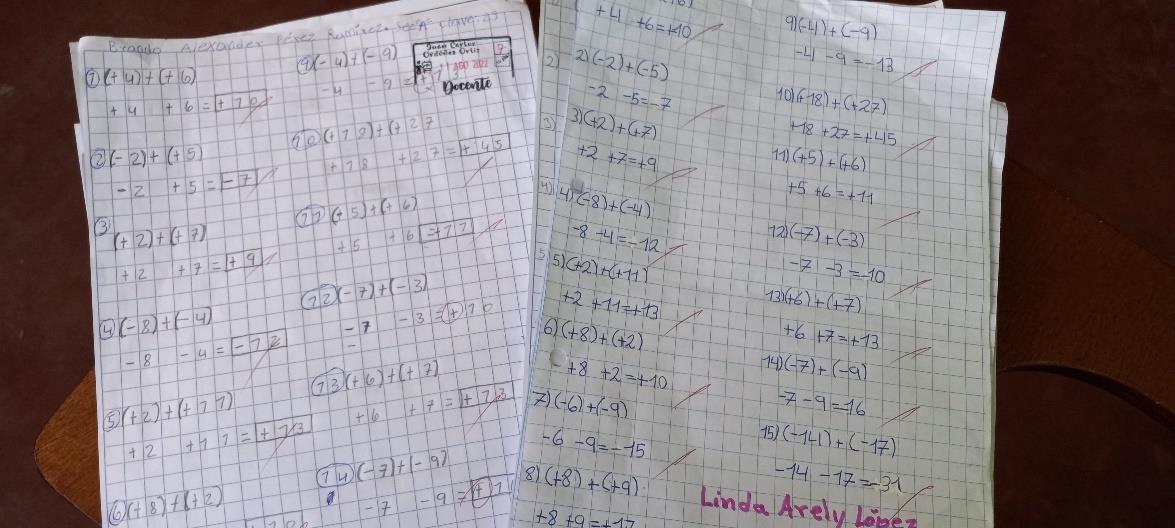 Brando Alexander Pérez Ramírez.
① (+4)+(+6)
+4 +6=+10
② (-2)+(+5)
-2 +5=-7
③ (+2)+(+7)
+2 +7=+9
④ (-8)+(-4)
-8 -4=-12
5) (+2)+(+11)
+2 +11=+13
⑥ (+8)+(+2)
⑨ (-4)+(-9)
-4 -9=+13
⑩ (+18)+(+27
+18 +27=+45
⑪ (+5)+(+6)
+5 +6=+11
⑫ (-7)+(-3)
-7 -3=+10
⑬ (+6)+(+7)
+6 +7=+13
⑭ (-7)+(-9)
-7 -9=+1
Juan Carlos
Ordoñez Ortiz
Docente
+4 +6=+10
2) 2) (-2)+(-5)
-2 -5=-7
3) 3) (+2)+(+7)
+2 +7=+9
4) 4) (-8)+(-4)
-8 -4=-12
5) 5) (+2)+(+11)
+2 +11=+13
6) (+8)+(+2)
+8 +2=+10
7) (-6)+(-9)
-6 -9=-15
8) (+8)+(+9)
+8 +9=+17
9) (-4)+(-9)
-4 -9=-13
10) (+18)+(+27)
+18 +27=+45
11) (+5)+(+6)
+5 +6=+11
12) (-7)+(-3)
-7 -3=-10
13) (+6)+(+7)
+6 +7=+13
14) (-7)+(-9)
-7 -9=-16
15) (-14)+(-17)
-14 -17=-31
Linda Arely López